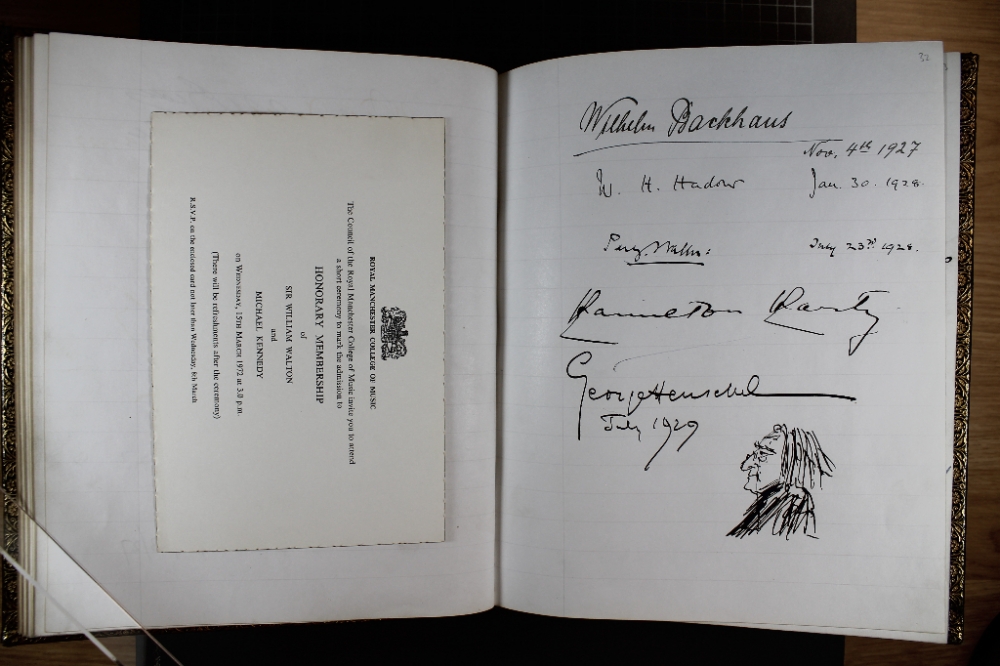 ROYAL MANCHESTER COLLEGE OF MUSIC
The Council of the Royal Manchester College of Music invite you to attend
a short ceremony to mark the admission to
HONORARY MEMBERSHIP
of
SIR WILLIAM WALTON
and
MICHAEL KENNEDY
on WEDNESDAY, 15TH MARCH 1972 at 3.0 p.m.
(There will be refreshments after the ceremony)
R.S.V.P. on the enclosed card not later than Wednesday, 8th March
32
Wilhelm Backhaus
Nov. 4th 1927
W. H. Hadow Jan. 30. 1928.
July 23rd 1928.
Hamilton Harty
George Henschel
July 1929